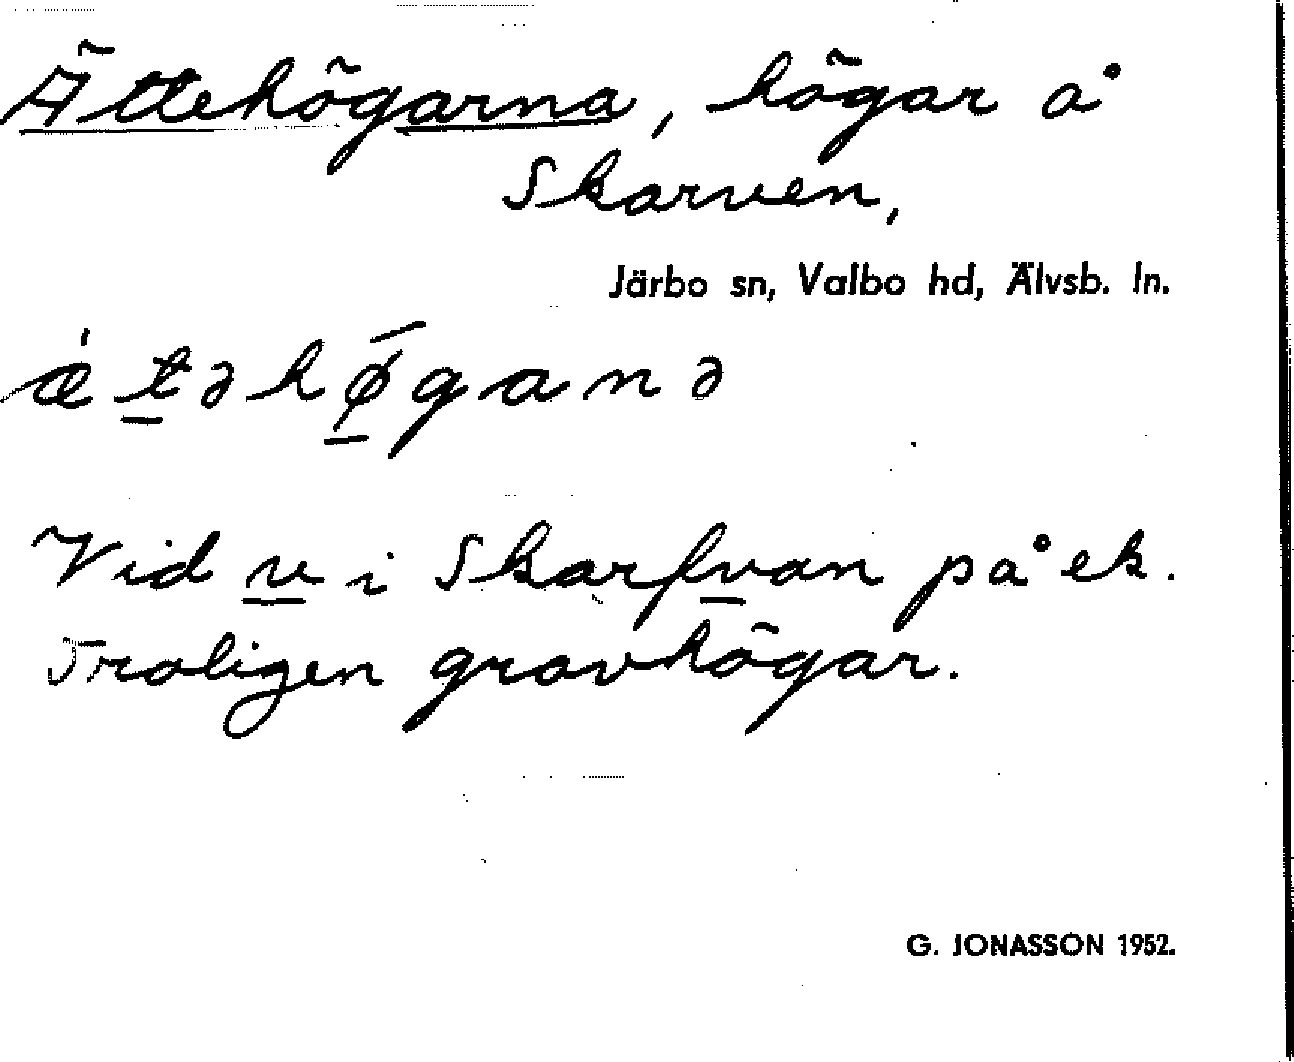 Ättehögarna, högar å
Skarven,
Järbo sn, Valbo hd, Älvsb. ln.
ǽt̲əhø̲̄ganə
Vid v i Skarfvan på ek.
Troligen gravhögar.
G. JONASSON 1952.